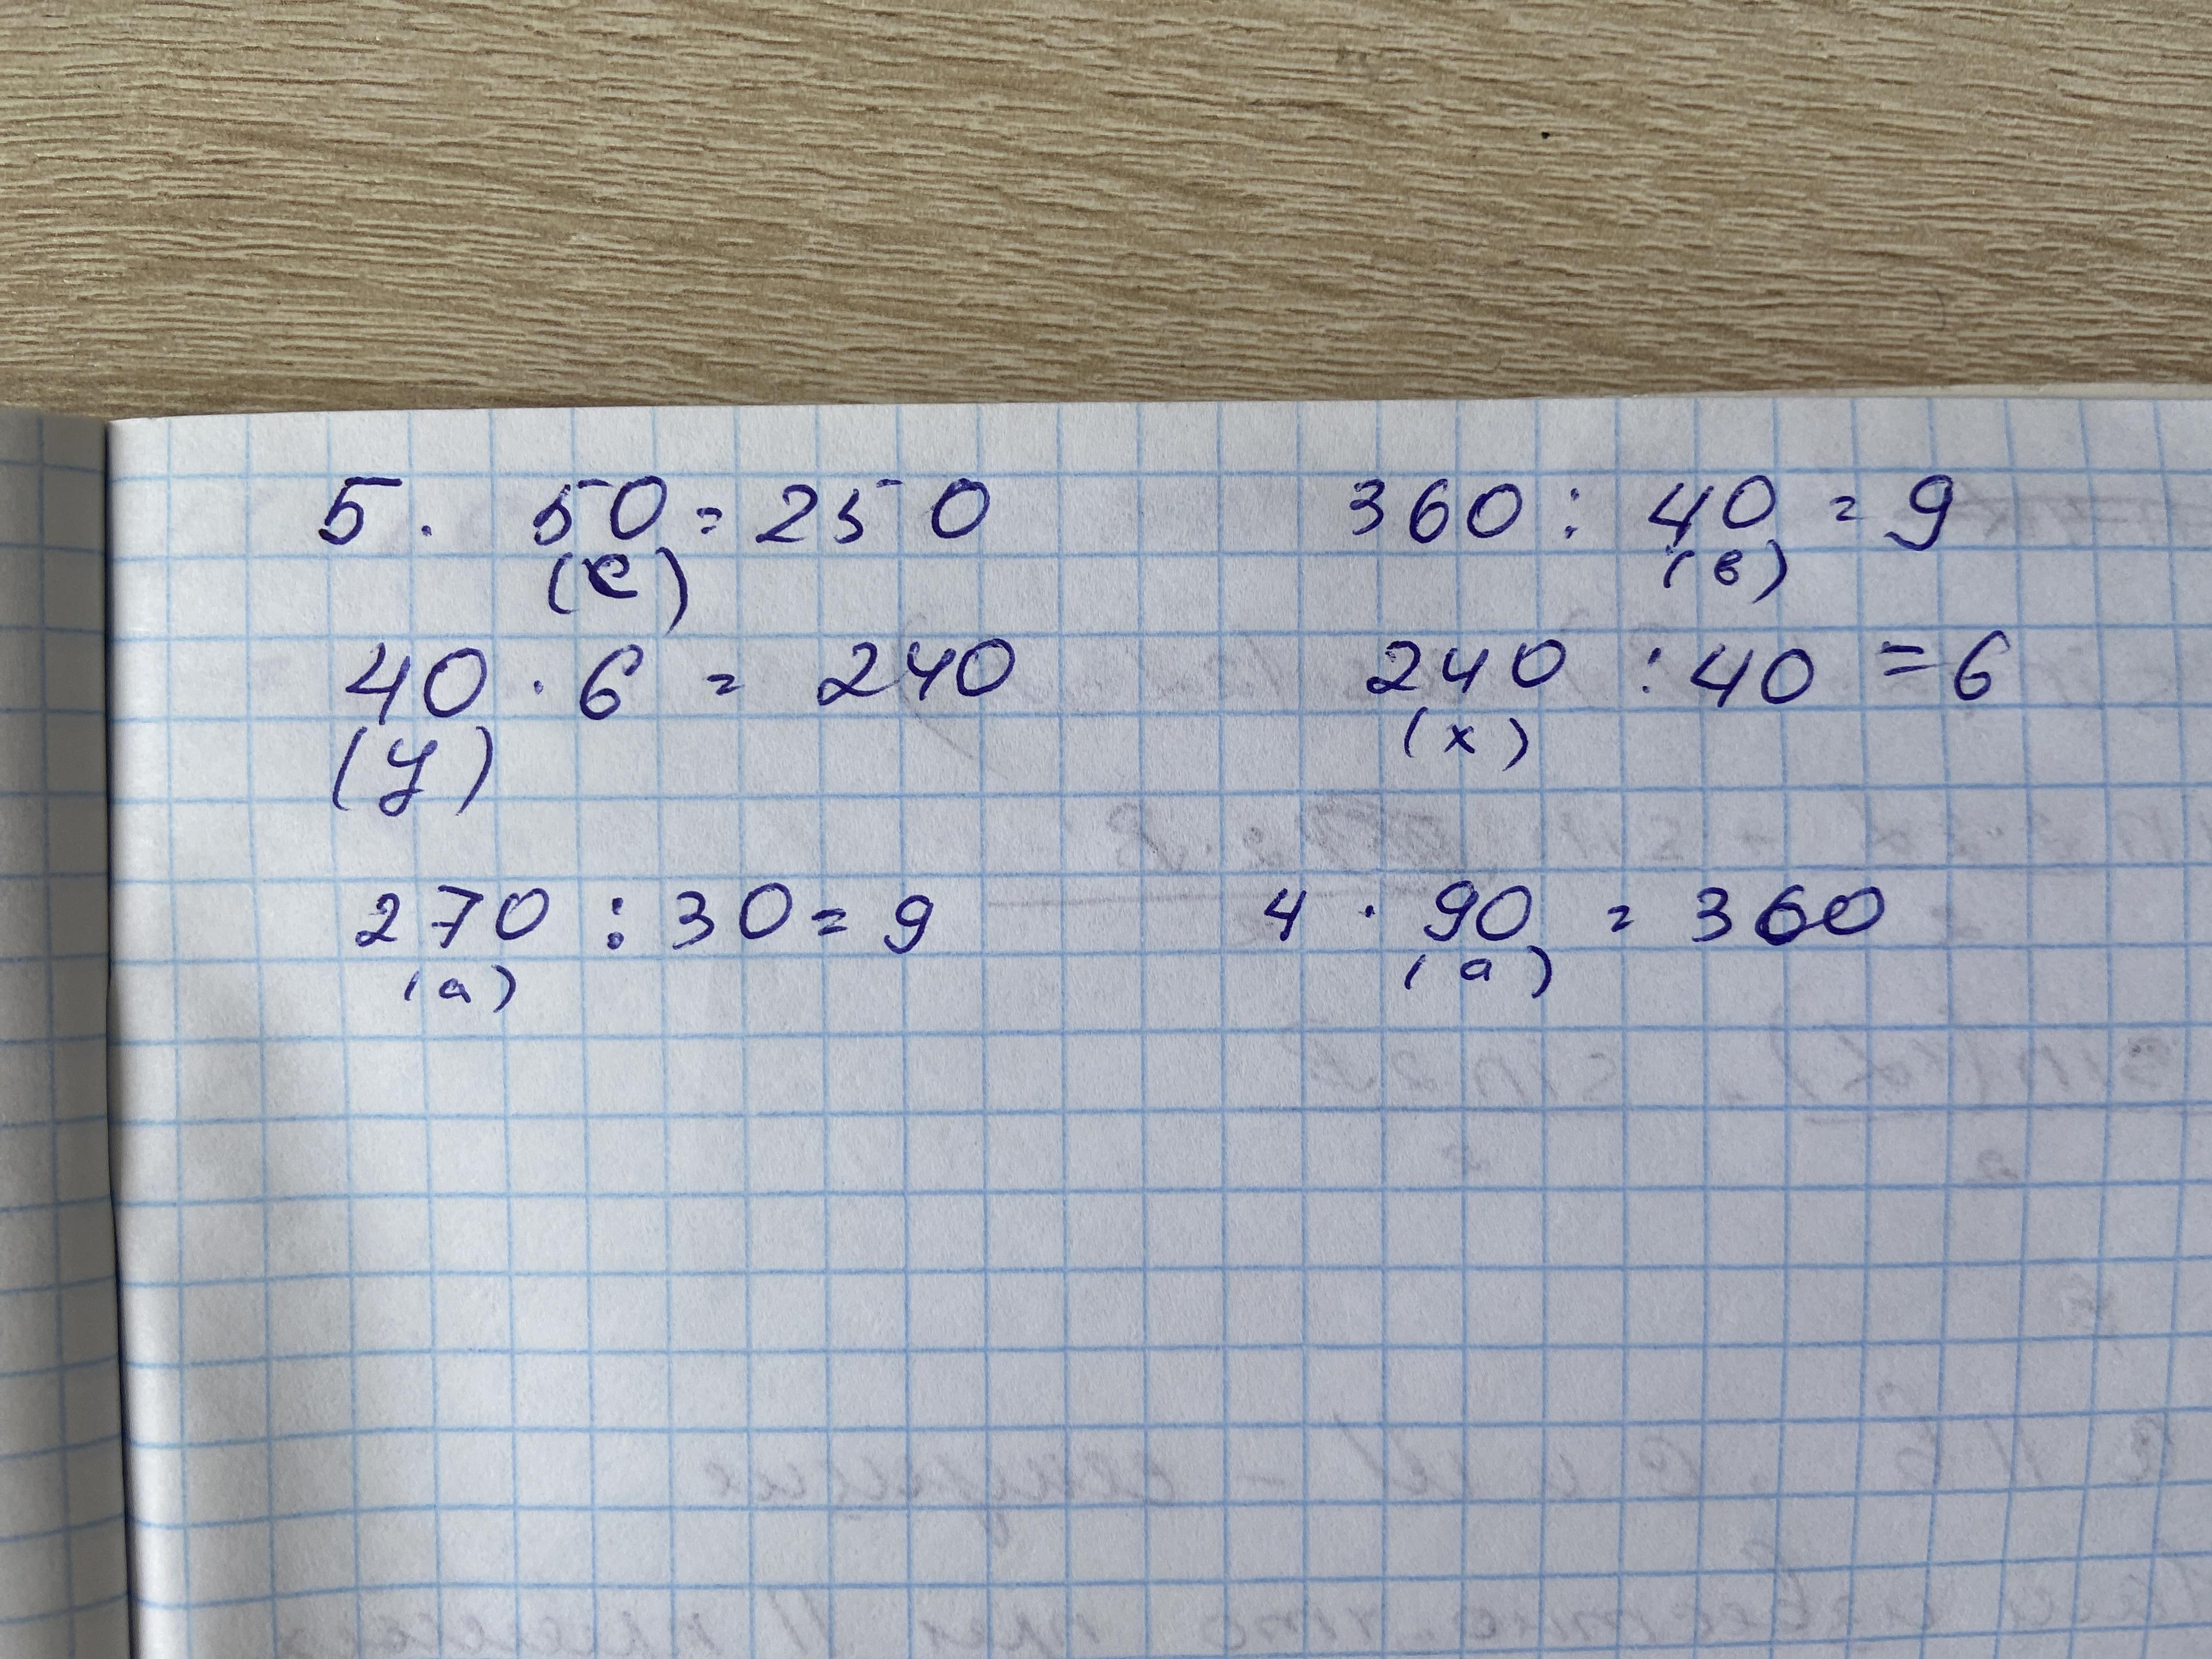 5 · 50 = 250 360 : 40 = 9
(с) (в)
40 · 6 = 240 240 : 40 = 6
(у) (х)
270 : 30 = 9 4 · 90 = 360
(а) (а)